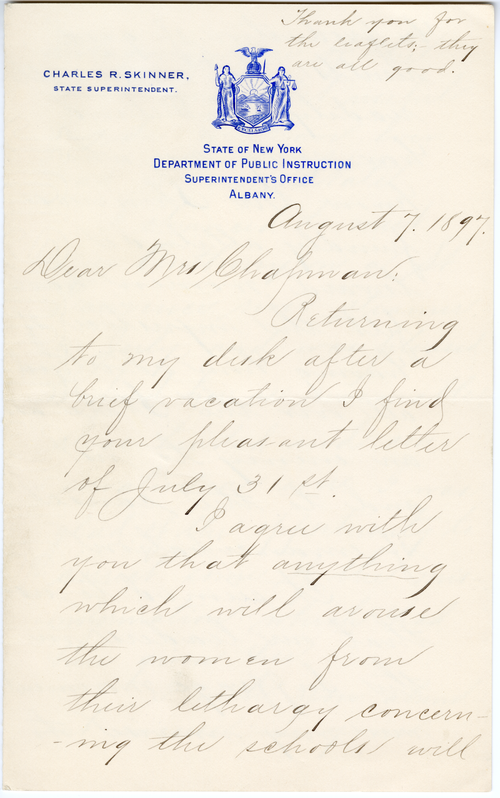 Thank you for
the leaflets;- they
are all good.
CHARLES R. SKINNER,
STATE SUPERINTENDENT.
EXCELSIOR
STATE OF NEW YORK
DEPARTMENT OF PUBLIC INSTRUCTION
SUPERINTENDENT'S OFFICE
ALBANY.
August 7. 1897.
Dear Mrs Chapman:
Returning
to my desk after a
brief vacation I find
your pleasant letter
of July 31 st.
I agree with
you that anything
which will arouse
the women from
their lethargy concern-
-ing the schools will